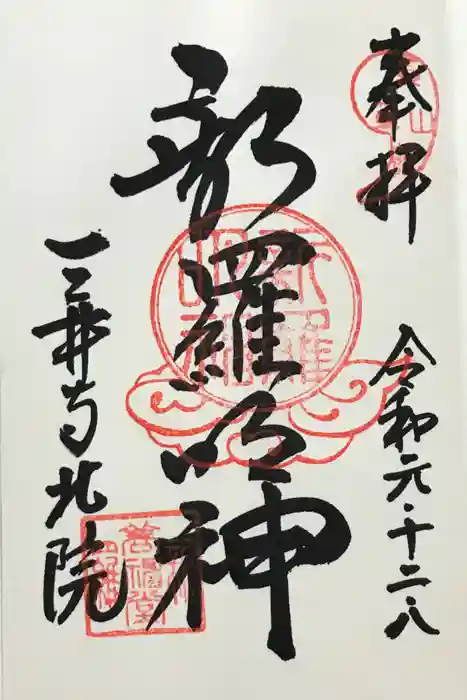 奉拝
令和元・十二・八
新羅明神
三井寺北院